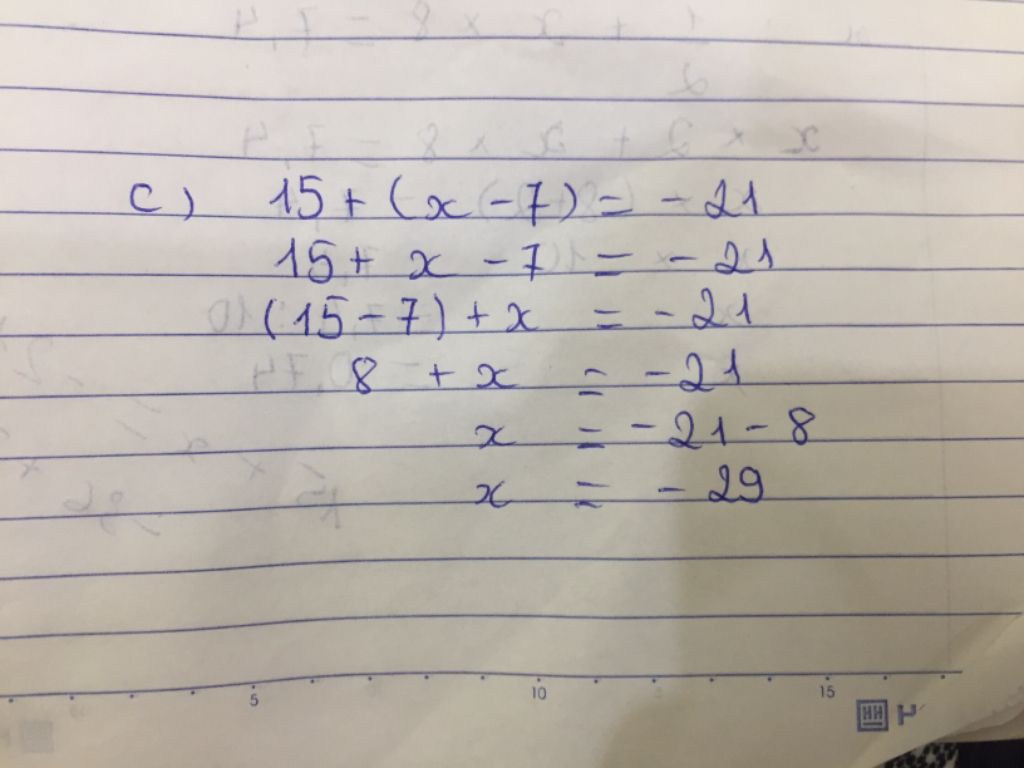 c) 15 + (x - 7) = - 21
15 + x - 7 = - 21
(15 - 7) + x = - 21
8 + x = - 21
x = - 21 - 8
x = - 29
5 10 15